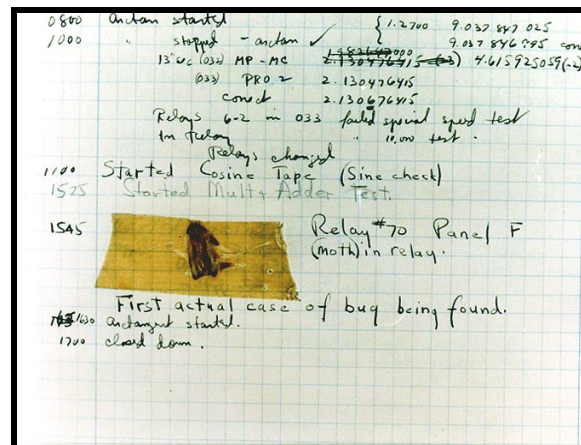 0800 Antan started
1000 " stopped - antan ✓ { 1.2700 9.037 847 025
9.037 846 995
13"uc (032) MP - MC 2.130476415 4.615925059(-2)
(033) PRO 2 2.130476415
conect 2.130676415
Relays 6-2 in 033 failed special speed test
In Relay " 10.000 test.
Relays changed
1100 Started Cosine Tape (Sine check)
1525 Started Mult+Adder Test.
1545 Relay #70 Panel F
(moth) in relay.
First actual case of bug being found.
1630 antangent started.
1700 closed down.